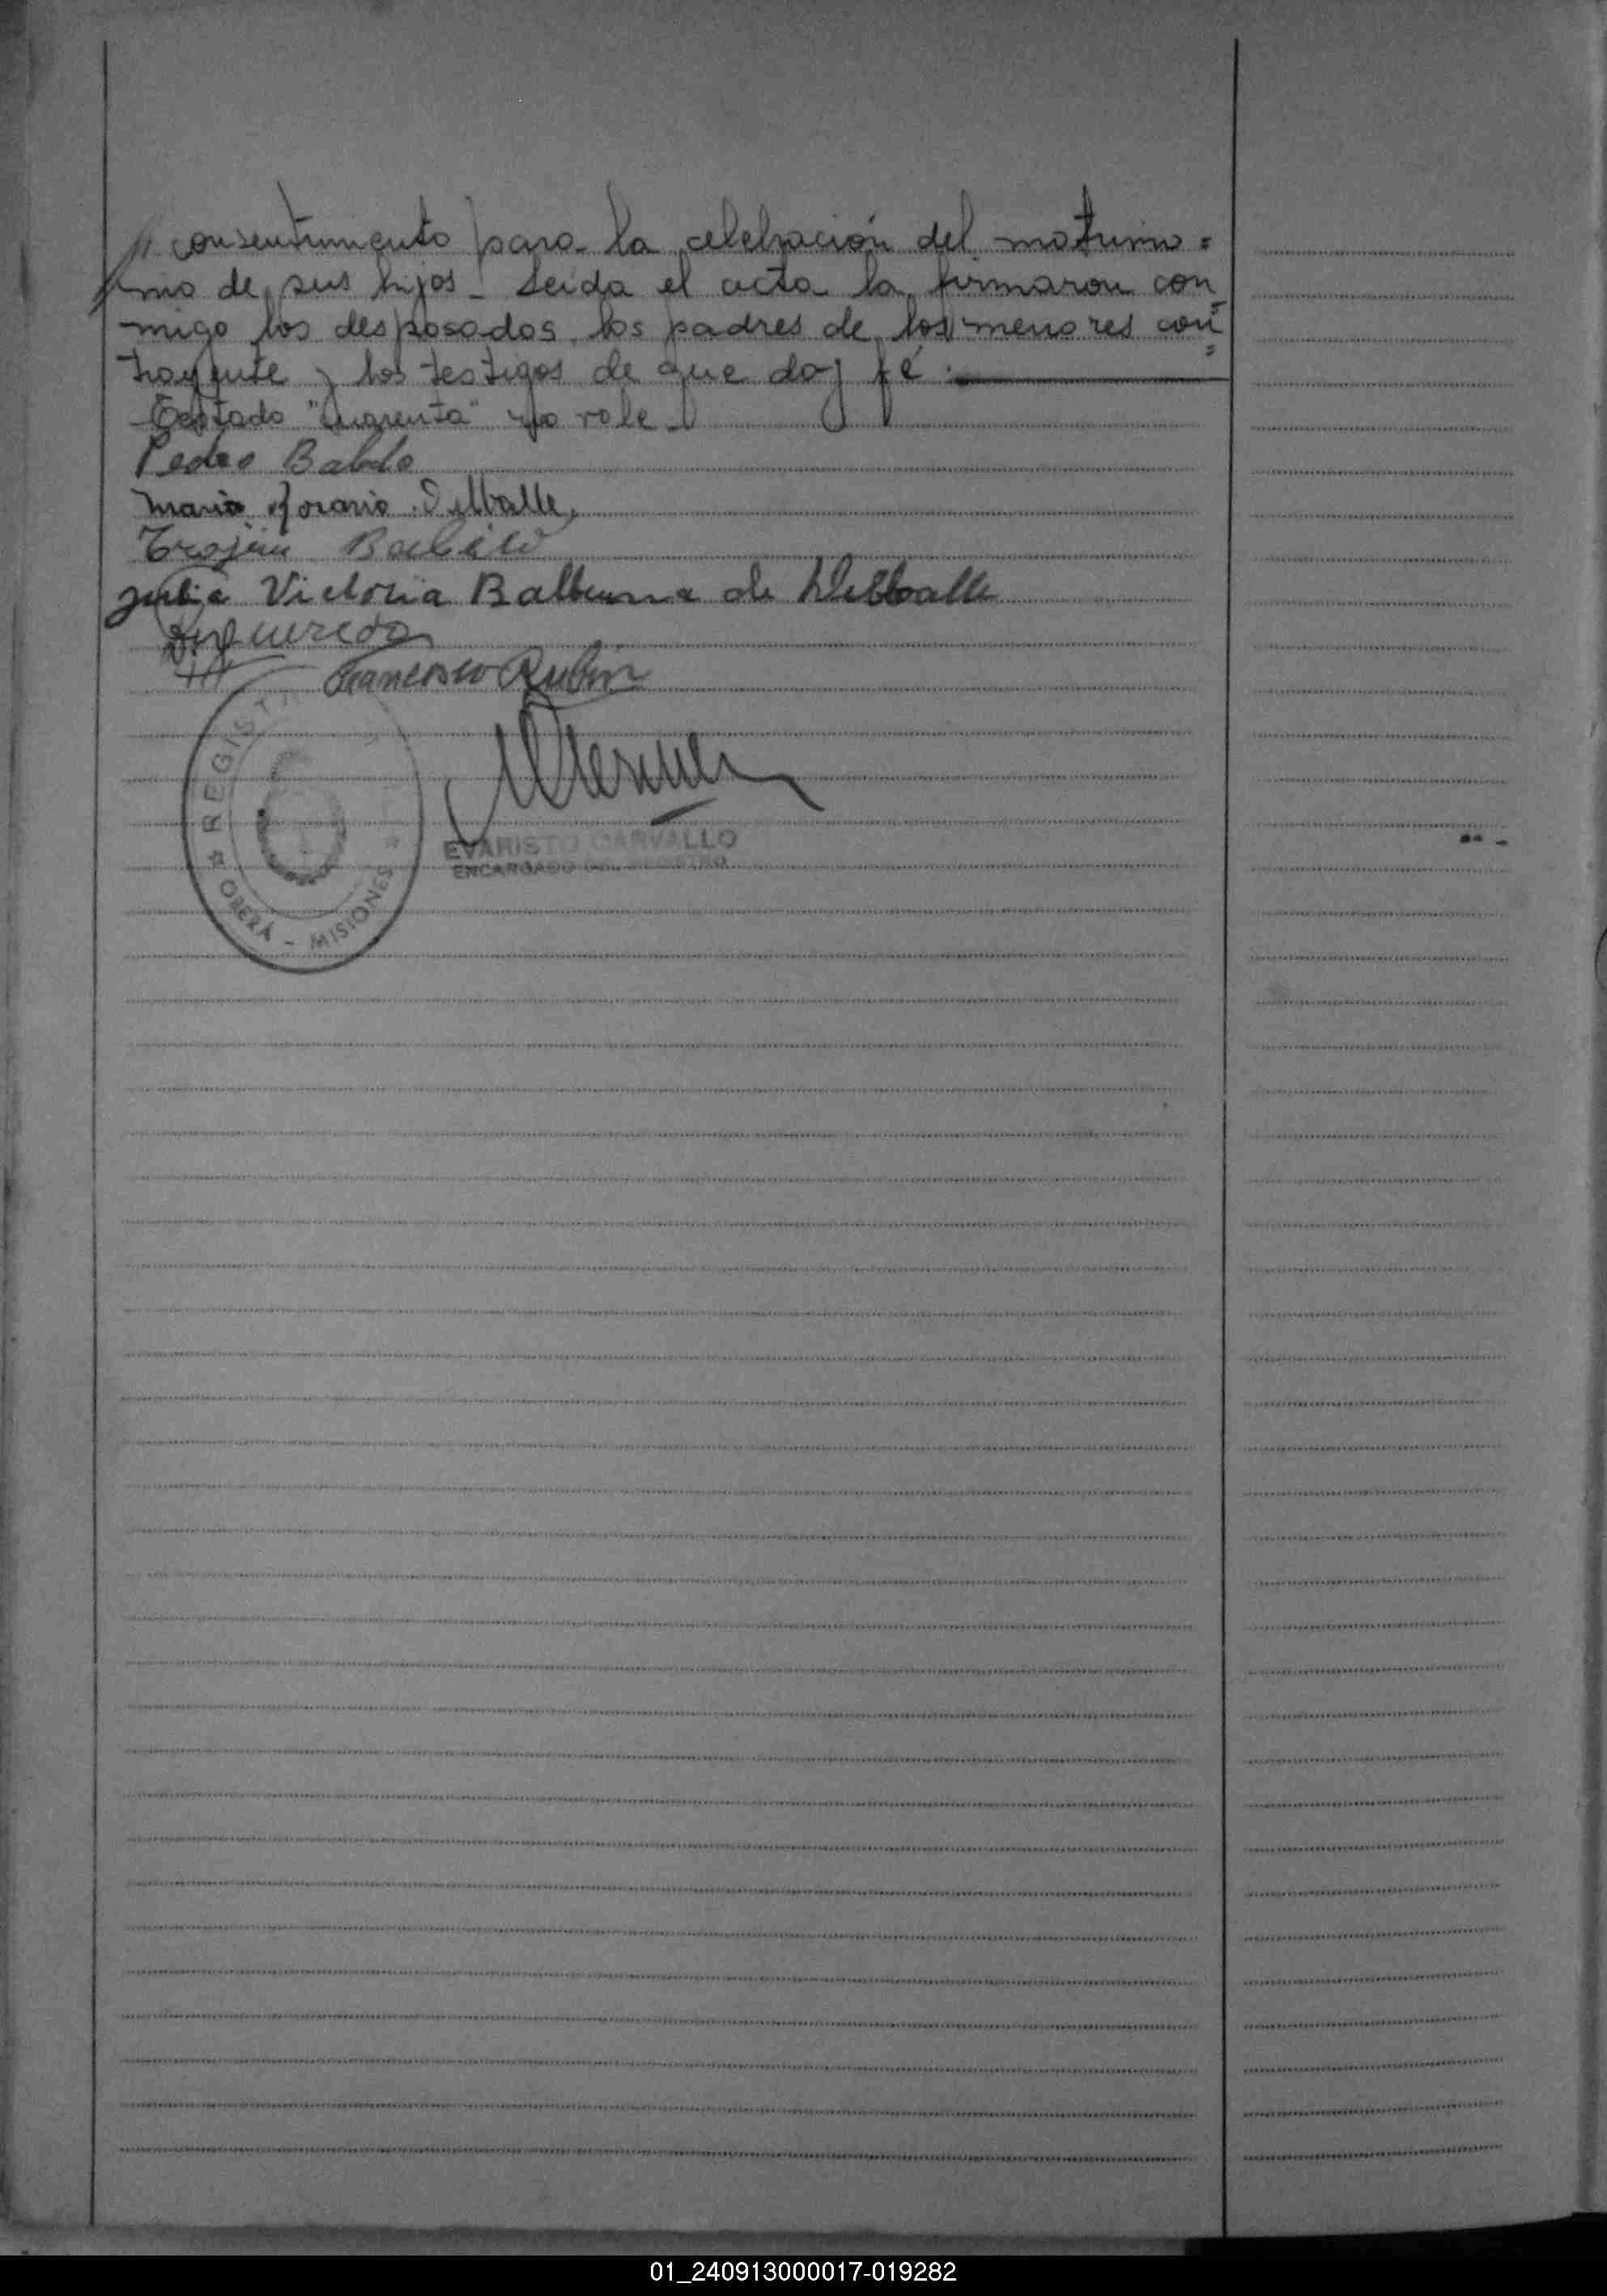 // consentimiento para la celebración del matrimo=
nio de sus hijos - Leída el acta la firmaron con
migo los desposados, los padres de los menores con=
trayente y los testigos de que doy fé.
Testado "cuarenta" no vale -
Pedro
Maria
Julia Victoria Balbuena de Delballe
Figueredo
Francisco Rubin
REGIST
OBERÁ - MISIONES
EVARISTO CARVALLO
ENCARGADO DEL REGISTRO
01_240913000017-019282